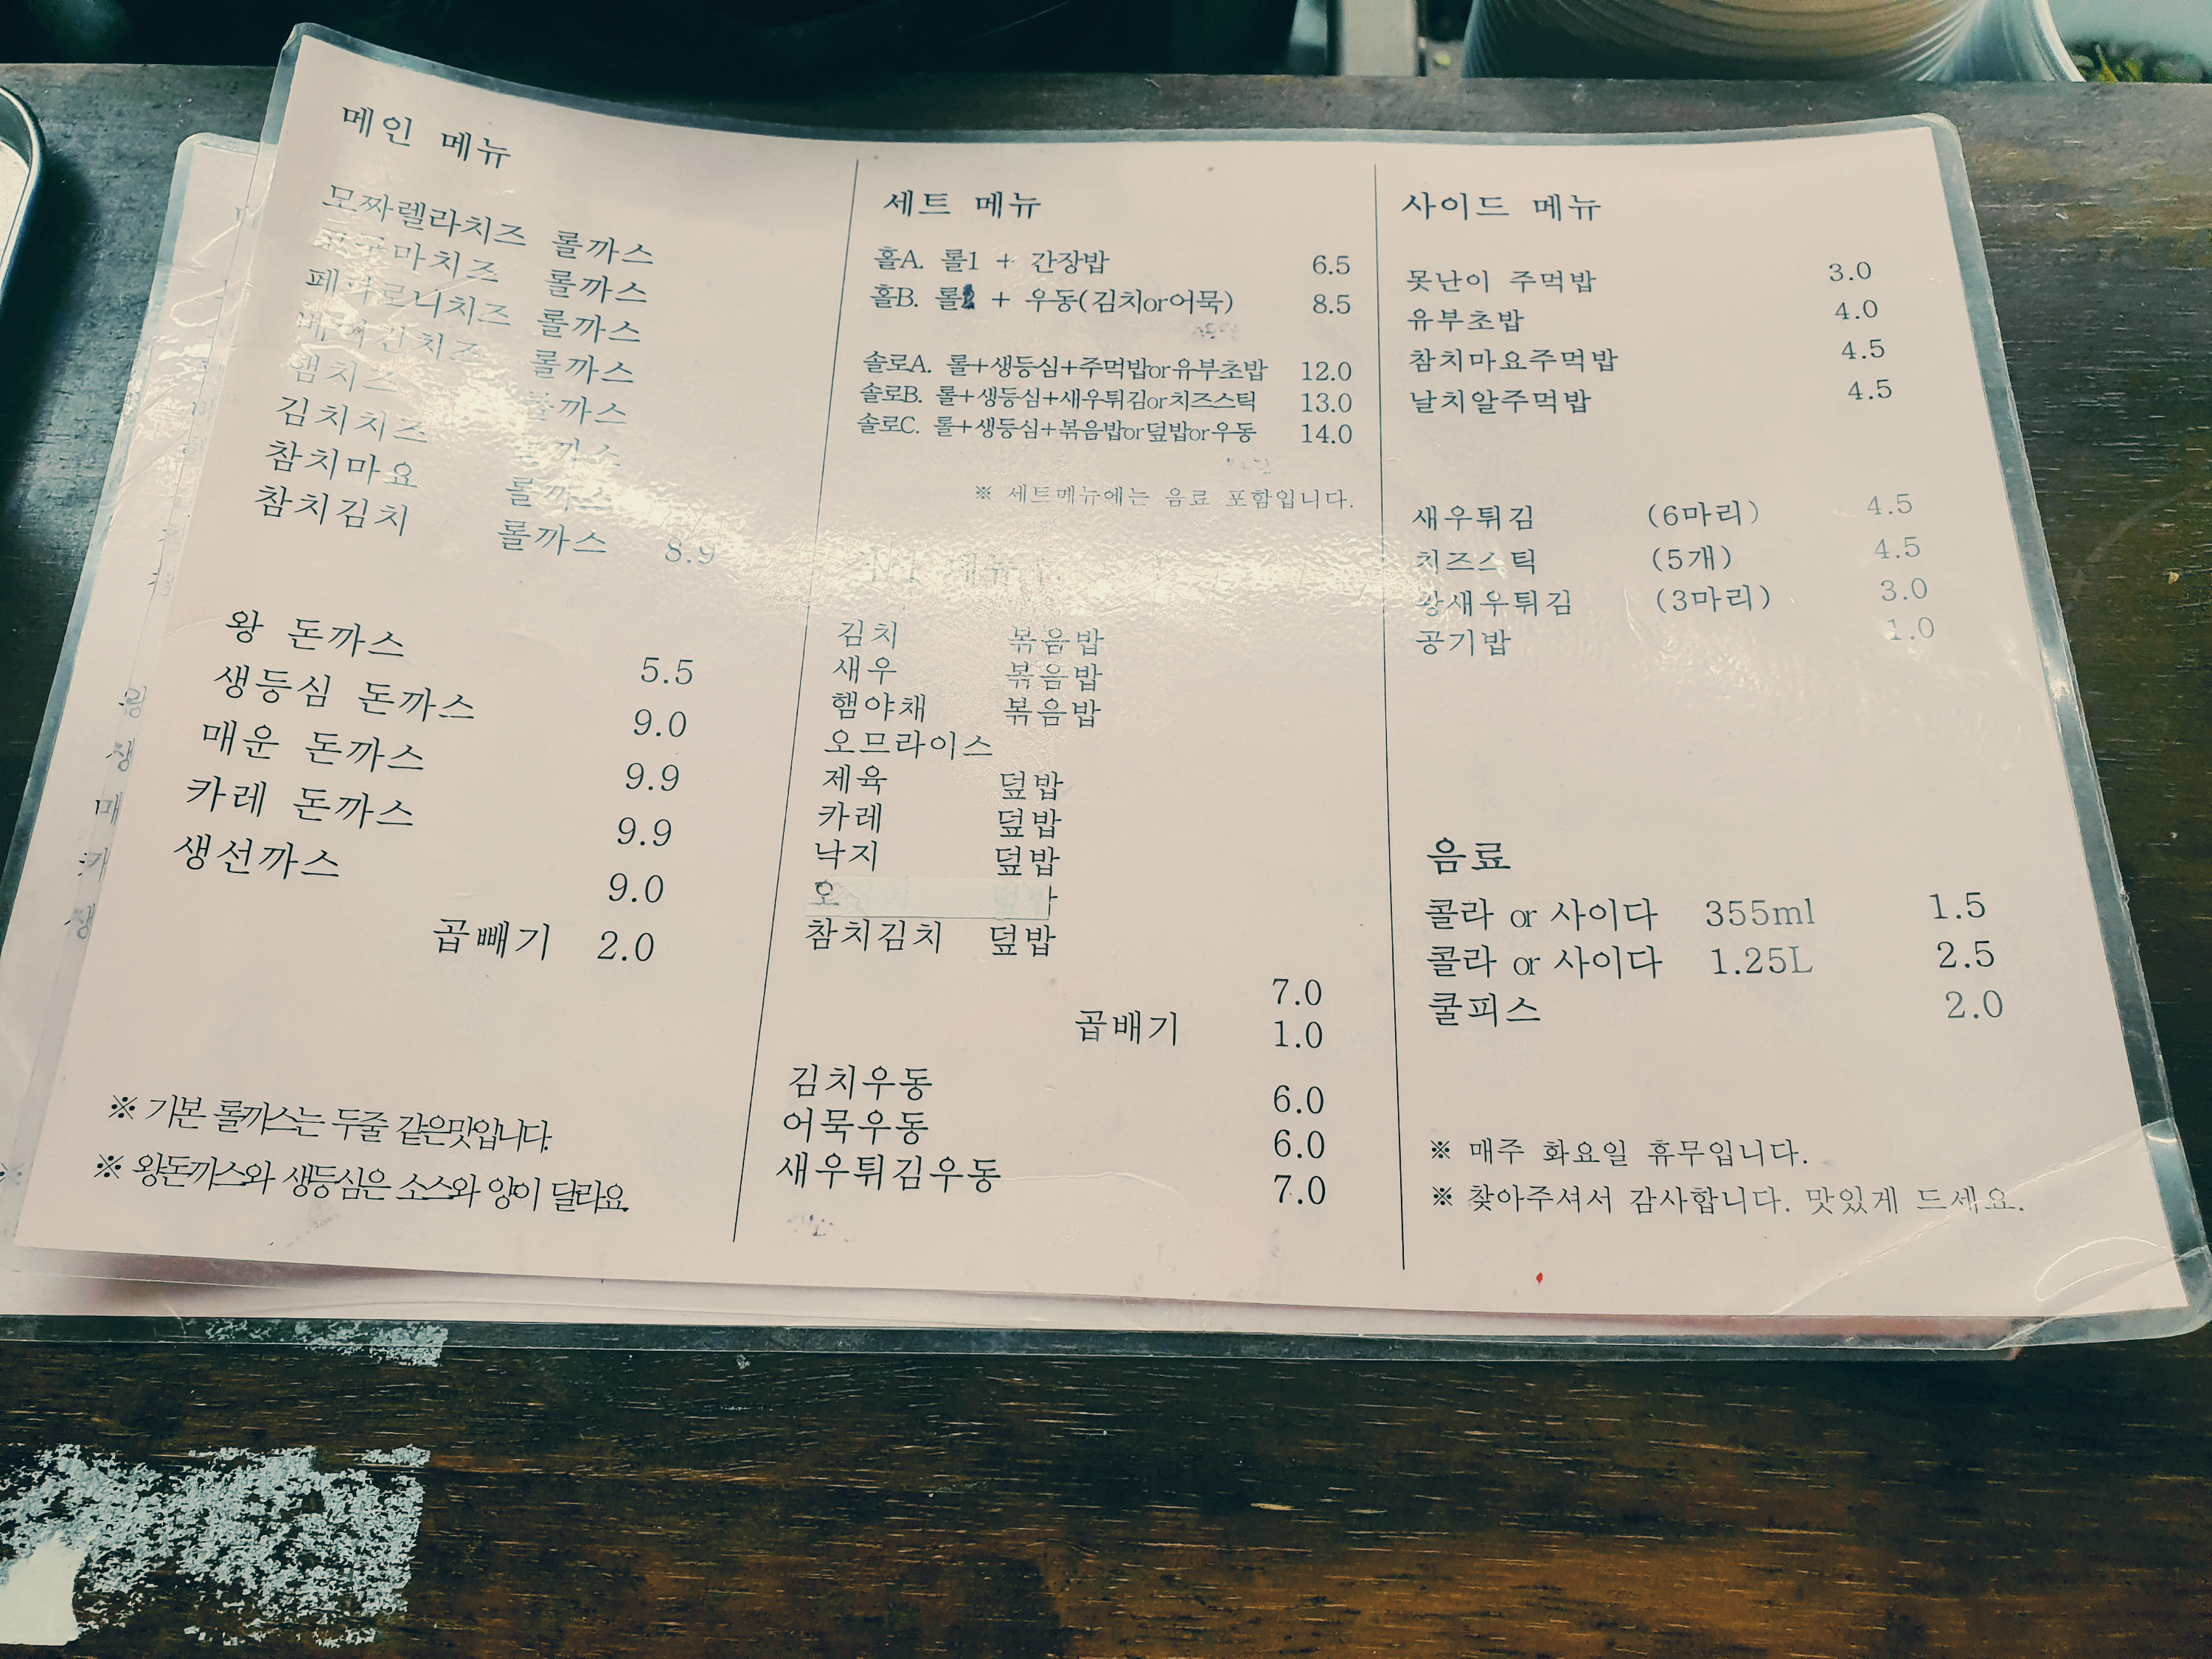 메인 메뉴
모짜렐라치즈 롤까스
고구마치즈 롤까스
페퍼로니치즈 롤까스
베이컨치즈 롤까스
햄치즈 롤까스
김치치즈 롤까스
참치마요 롤까스
참치김치 롤까스 8.9
왕 돈까스 5.5
생등심 돈까스 9.0
매운 돈까스 9.9
카레 돈까스 9.9
생선까스 9.0
곱빼기 2.0
※ 기본 롤까스는 두줄 같은맛입니다.
※ 왕돈까스와 생등심은 소스와 양이 달라요.
세트 메뉴
홀A. 롤1 + 간장밥 6.5
홀B. 롤 + 우동(김치or어묵) 8.5
솔로A. 롤+생등심+주먹밥or유부초밥 12.0
솔로B. 롤+생등심+새우튀김or치즈스틱 13.0
솔로C. 롤+생등심+볶음밥or덮밥or우동 14.0
※ 세트메뉴에는 음료 포함입니다.
메뉴
김치 볶음밥
새우 볶음밥
햄야채 볶음밥
오므라이스
제육 덮밥
카레 덮밥
낙지 덮밥
참치김치 덮밥
7.0
곱배기 1.0
김치우동 6.0
어묵우동 6.0
새우튀김우동 7.0
사이드 메뉴
못난이 주먹밥 3.0
유부초밥 4.0
참치마요주먹밥 4.5
날치알주먹밥 4.5
새우튀김 (6마리) 4.5
치즈스틱 (5개) 4.5
왕새우튀김 (3마리) 3.0
공기밥 1.0
음료
콜라 or 사이다 355ml 1.5
콜라 or 사이다 1.25L 2.5
쿨피스 2.0
※ 매주 화요일 휴무입니다.
※ 찾아주셔서 감사합니다. 맛있게 드세요.